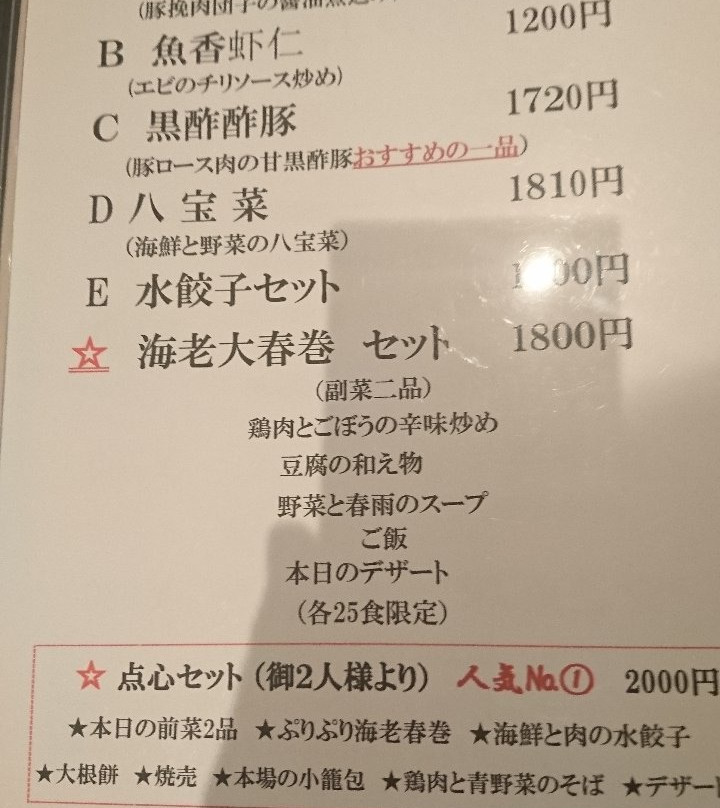 (豚挽肉団子の醤油煮込み
1200円
B 魚香虾仁
(エビのチリソース炒め)
C 黒酢酢豚 1720円
(豚ロース肉の甘黒酢豚おすすめの一品)
D 八宝菜 1810円
(海鮮と野菜の八宝菜)
E 水餃子セット 00円
☆ 海老大春巻 セット 1800円
(副菜二品)
鶏肉とごぼうの辛味炒め
豆腐の和え物
野菜と春雨のスープ
ご飯
本日のデザート
(各25食限定)
☆ 点心セット (御2人様より) 人気No.① 2000円
★本日の前菜2品 ★ぷりぷり海老春巻 ★海鮮と肉の水餃子
★大根餅 ★焼売 ★本場の小籠包 ★鶏肉と青野菜のそば ★デザー